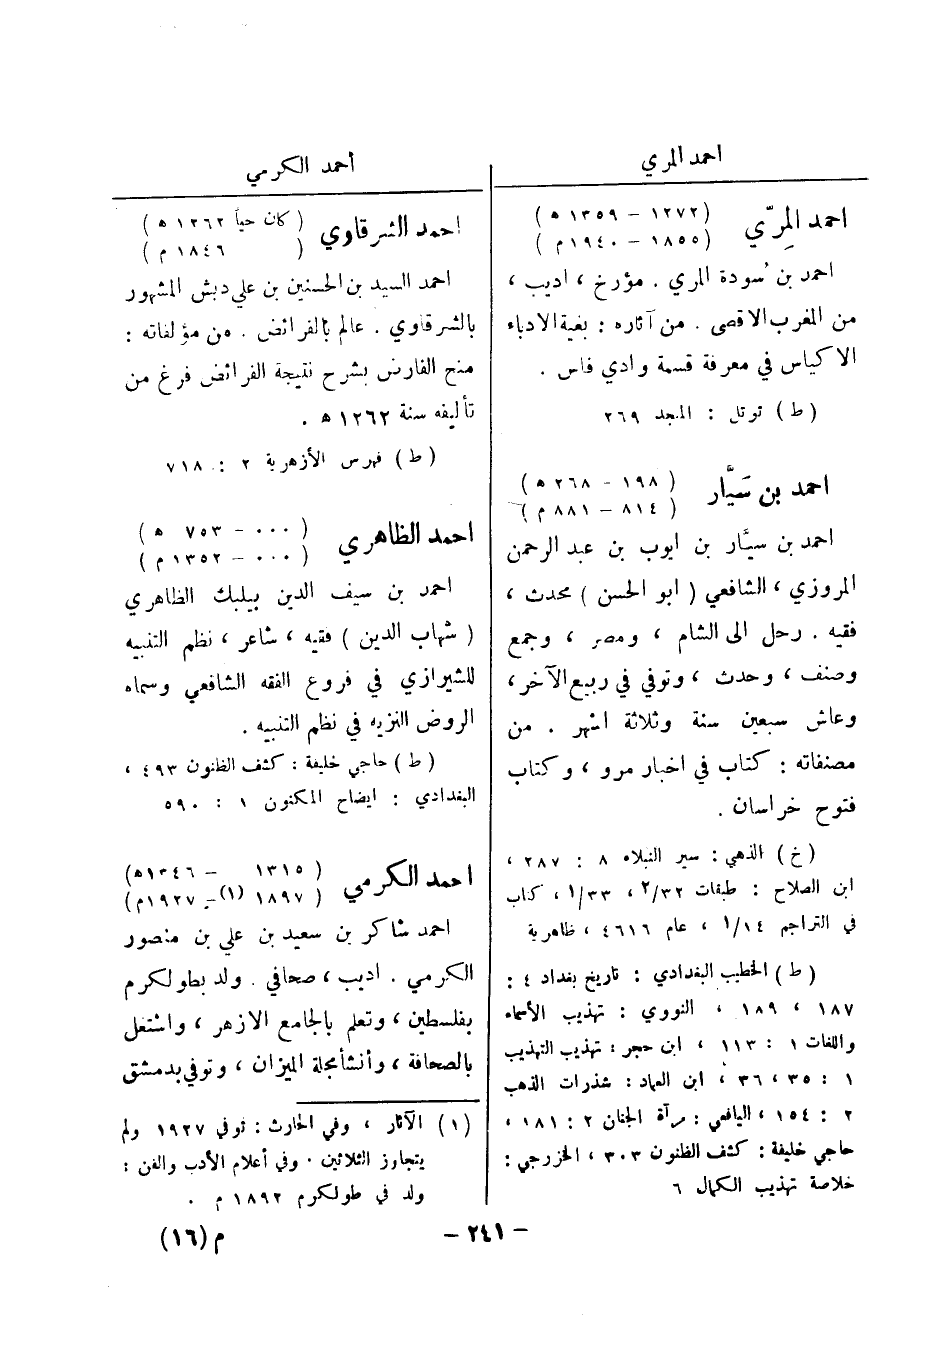 احمد المري
احمد المِرّي
(١٢٧٢ – ١٣٥٩ ه)
(١٨٥٥ – ١٩٤٠ م)
احمد بن سُودة المري . مؤرخ ، اديب ،
من المغرب الاقصى . من آثاره : بغية الادباء
الاكياس في معرفة قسمة وادي فاس .
(ط) توتل : المنجد ٢٦٩
احمد بن سَيَّار
(١٩٨ – ٢٦٨ ه)
(٨١٤ – ٨٨١ م)
احمد بن سيَّار بن ايوب بن عبد الرحمن
المروزي ، الشافعي ( ابو الحسن ) محدث ،
فقيه . رحل الى الشام ، ومصر ، وجمع
وصنف ، وحدث ، وتوفي في ربيع الآخر ،
وعاش سبعين سنة وثلاثة اشهر . من
مصنفاته : كتاب في اخبار مرو ، وكتاب
فتوح خراسان .
(خ) الذهبي : سير النبلاء ٨ : ٢٨٧ ،
ابن الصلاح : طبقات ٣٢/٢ ، ٣٣/١ ، كتاب
في التراجم ١٤/١ ، عام ٤٦١٦ ، ظاهرية
(ط) الخطيب البغدادي : تاريخ بغداد ٤ :
١٨٧ ، ١٨٩ ، النووي : تهذيب الأسماء
واللغات ١ : ١١٣ ، ابن حجر : تهذيب التهذيب
١ : ٣٥ ، ٣٦ ، ابن العماد : شذرات الذهب
٢ : ١٥٤ ، اليافعي : مرآة الجنان ٢ : ١٨١ ،
حاجي خليفة : كشف الظنون ٣٠٣ ، الخزرجي :
خلاصة تهذيب الكمال ٦
أحمد الكرمي
احمد الشرقاوي
( كان حياً ١٢٦٢ ه )
( ١٨٤٦ م )
احمد السيد بن الحسنين بن علي دبش المشهور
بالشرقاوي . عالم بالفرائض . من مؤلفاته :
منح الفارض بشرح نتيجة الفرائض فرغ من
تأليفه سنة ١٢٦٢ ه .
(ط) فهرس الأزهرية ٢ : ٧١٨
احمد الظاهري
(٠٠٠ – ٧٥٣ ه)
(٠٠٠ – ١٣٥٢ م)
احمد بن سيف الدين بيلبك الظاهري
( شهاب الدين ) فقيه ، شاعر ، نظم التنبيه
للشيرازي في فروع الفقه الشافعي وسماه
الروض النزيه في نظم التنبيه .
(ط) حاجي خليفة : كشف الظنون ٤٩٣ ،
البغدادي : ايضاح المكنون ١ : ٥٩٠
احمد الكرمي
(١٣١٥ – ١٣٤٦ ه)
(١٨٩٧ (١) – ١٩٢٧ م)
احمد شاكر بن سعيد بن علي بن منصور
الكرمي . اديب ، صحافي . ولد بطولكرم
بفلسطين ، وتعلم بالجامع الازهر ، واشتغل
بالصحافة ، وأنشأ مجلة الميزان ، وتوفي بدمشق
(١) الآثار ، وفي الحارث : توفي ١٩٢٧ ولم
يتجاوز الثلاثين . وفي أعلام الأدب والفن :
ولد في طولكرم ١٨٩٢ م .
– ٢٤١ –
م (١٦)